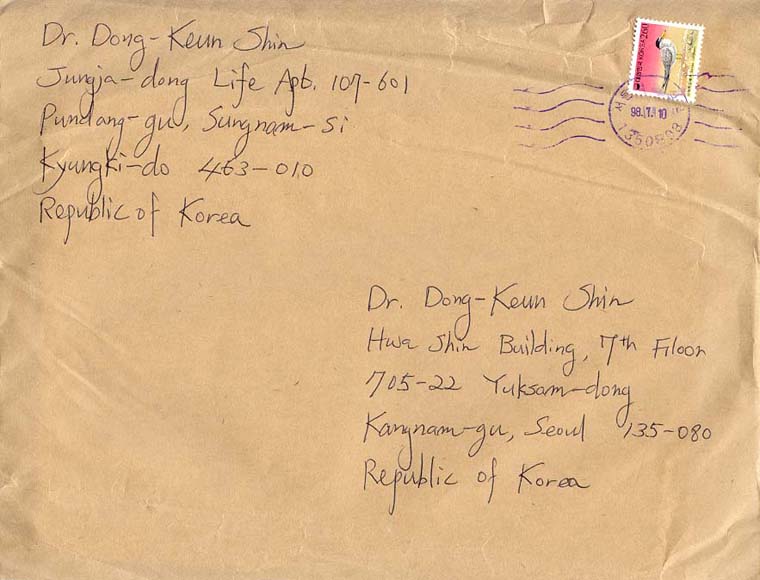 Dr. Dong-Keun Shin
Jungja-dong Life Apt. 107-601
Pundang-gu, Sungnam-si
Kyungki-do 463-010
Republic of Korea
98.7.10
Dr. Dong-Keun Shin
Hwa Shin Building, 7th Floor
705-22 Yuksam-dong
Kangnam-gu, Seoul 135-080
Republic of Korea